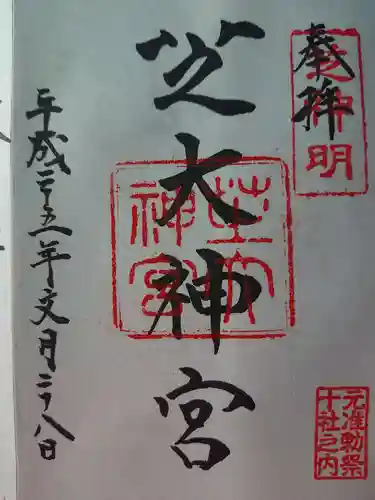 奉拝
芝神明
芝大神宮
芝大神宮
元准勅祭
十社之内
平成二十五年文月二十八日